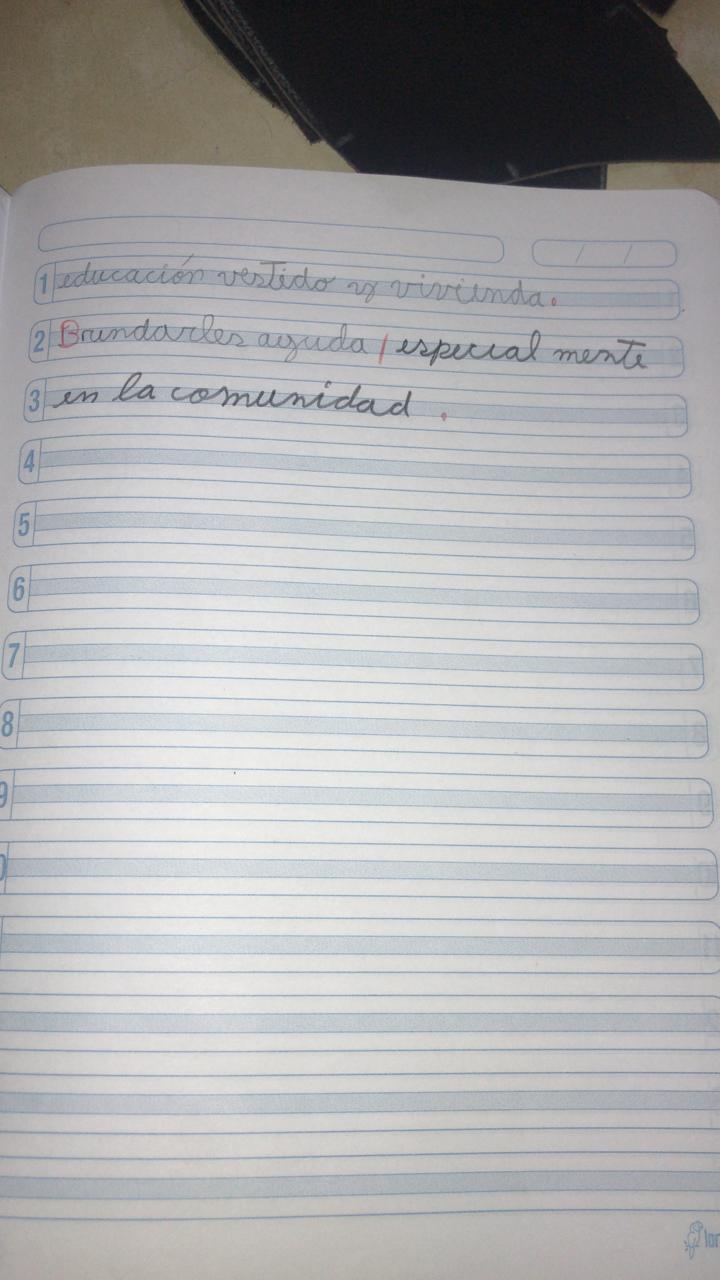 1 educación vestido y vivienda.
2 Brindarles ayuda / especial mente
3 en la comunidad .
4
5
6
7
8
9